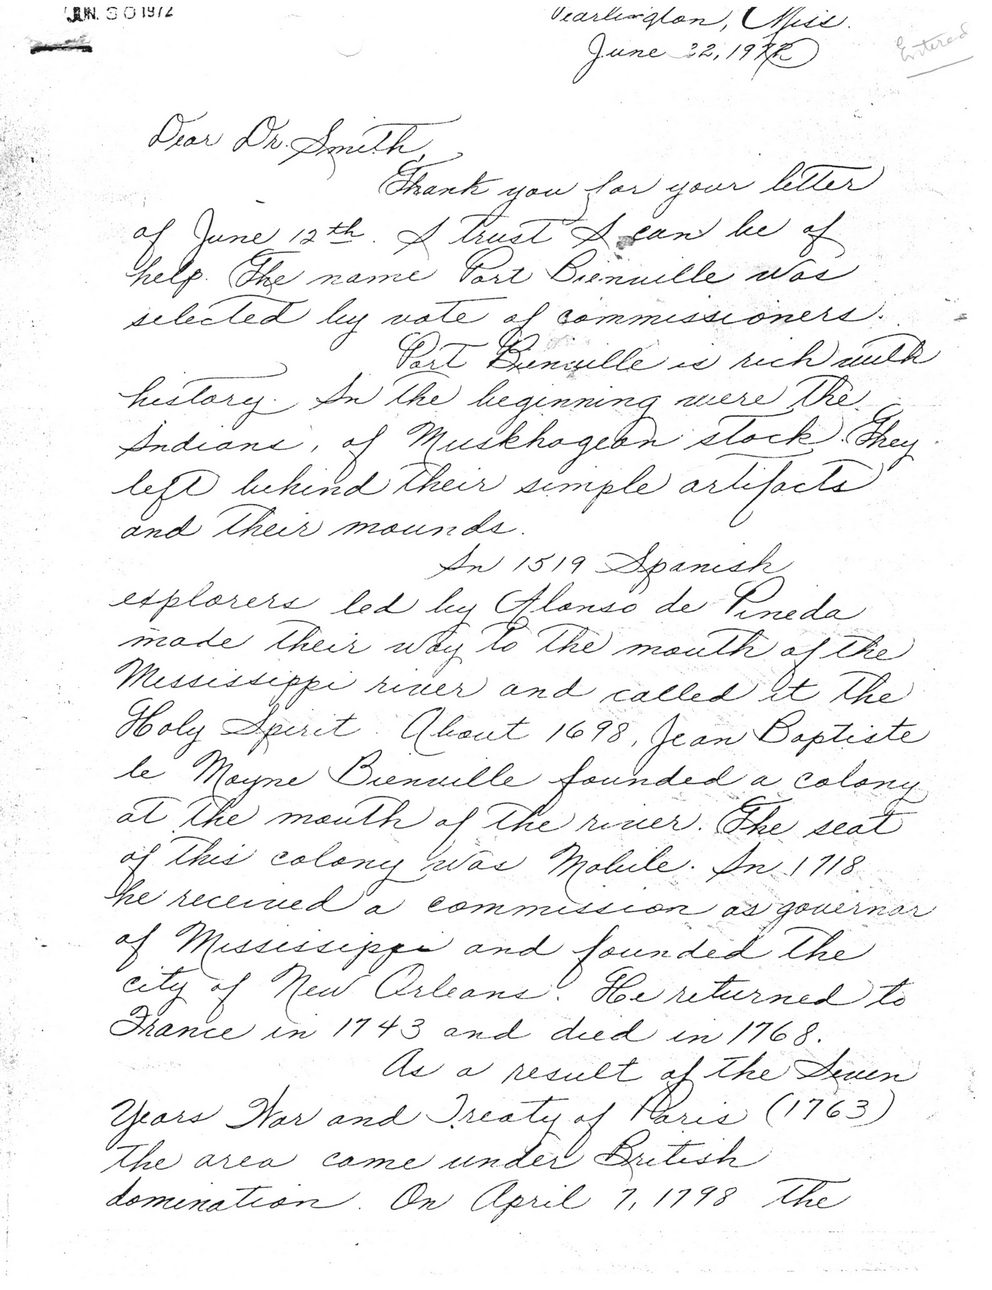 JUN. 30 1972
Pearlington, Miss.
June 22, 1972
Entered
Dear Dr. Smith,
Thank you for your letter
of June 12th. I trust I can be of
help. The name Port Bienville was
selected by vote of commissioners.
Port Bienville is rich with
history. In the beginning were the
Indians, of Muskhogean stock. They
left behind their simple artifacts
and their mounds.
In 1519 Spanish
explorers led by Alonso de Pineda
made their way to the mouth of the
Mississippi river and called it the
Holy Spirit. About 1698, Jean Baptiste
le Moyne Bienville founded a colony
at the mouth of the river. The seat
of this colony was Mobile. In 1718
he received a commission as governor
of Mississippi and founded the
city of New Orleans. He returned to
France in 1743 and died in 1768.
As a result of the Seven
Years War and Treaty of Paris (1763)
the area came under British
domination. On April 7, 1798 the